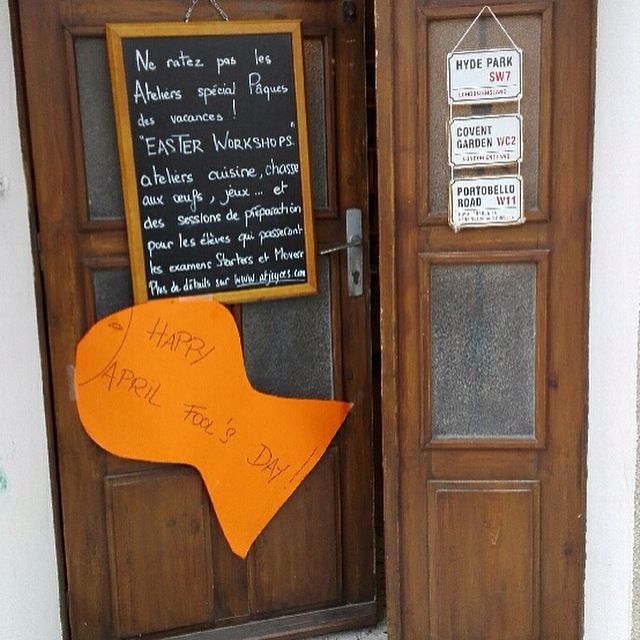 Ne ratez pas les
Ateliers spécial Pâques
des vacances !
"EASTER WORKSHOPS"
ateliers cuisine, chasse
aux œufs, jeux ... et
des sessions de préparation
pour les élèves qui passeront
les examens Starters et Movers
Plus de détails sur www.atjoyces.com
HAPPY
APRIL FOOL'S
DAY !
HYDE PARK
SW7
LONDON ENGLAND
COVENT
GARDEN WC2
LONDON ENGLAND
PORTOBELLO
ROAD W11